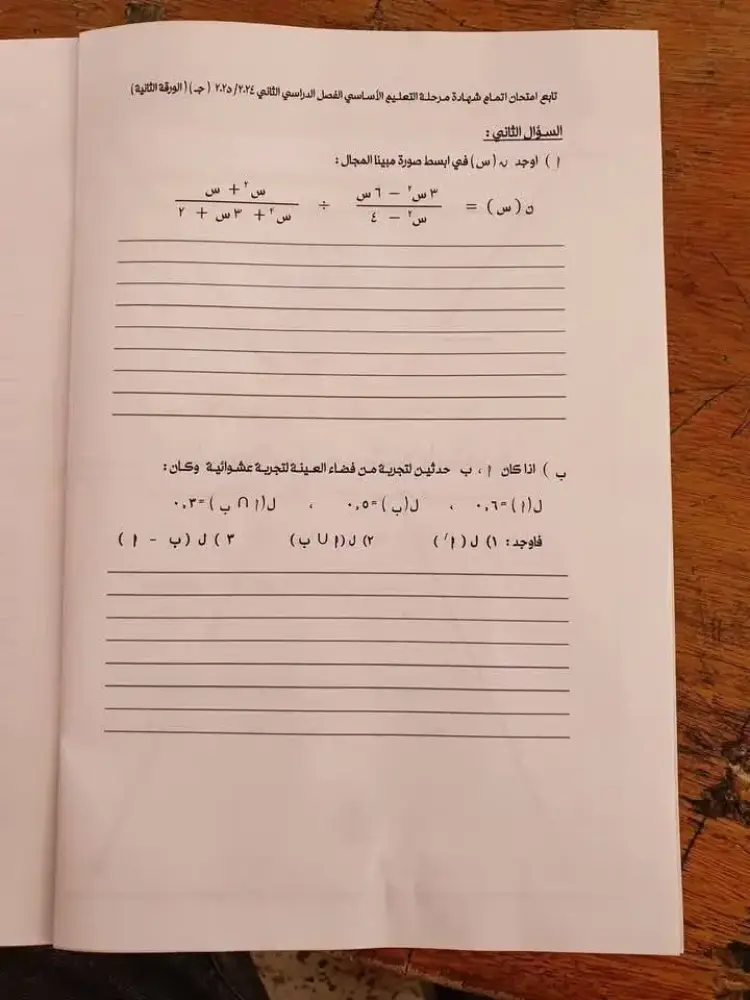 تابع امتحان اتمام شهادة مرحلة التعليم الأساسي الفصل الدراسي الثاني ٢٠٢٤/ ٢٠٢٥ ( جـ ) ( الورقة الثانية)
السؤال الثاني :
أ ) اوجد ن (س) في ابسط صورة مبينا المجال :
ن ( س ) = (٣ س٢ − ٦ س) / (س٢ − ٤) ÷ (س٢ + س) / (س٢ + ٣ س + ٢)
ب ) اذا كان أ ، ب حدثين لتجربة من فضاء العينة لتجربة عشوائية وكان :
ل( أ ) =٠,٦ ، ل( ب ) =٠,٥ ، ل( أ ∩ ب ) =٠,٣
فاوجد : ١) ل ( أ/ ) ٢) ل ( أ ∪ ب ) ٣ ) ل ( ب − أ )